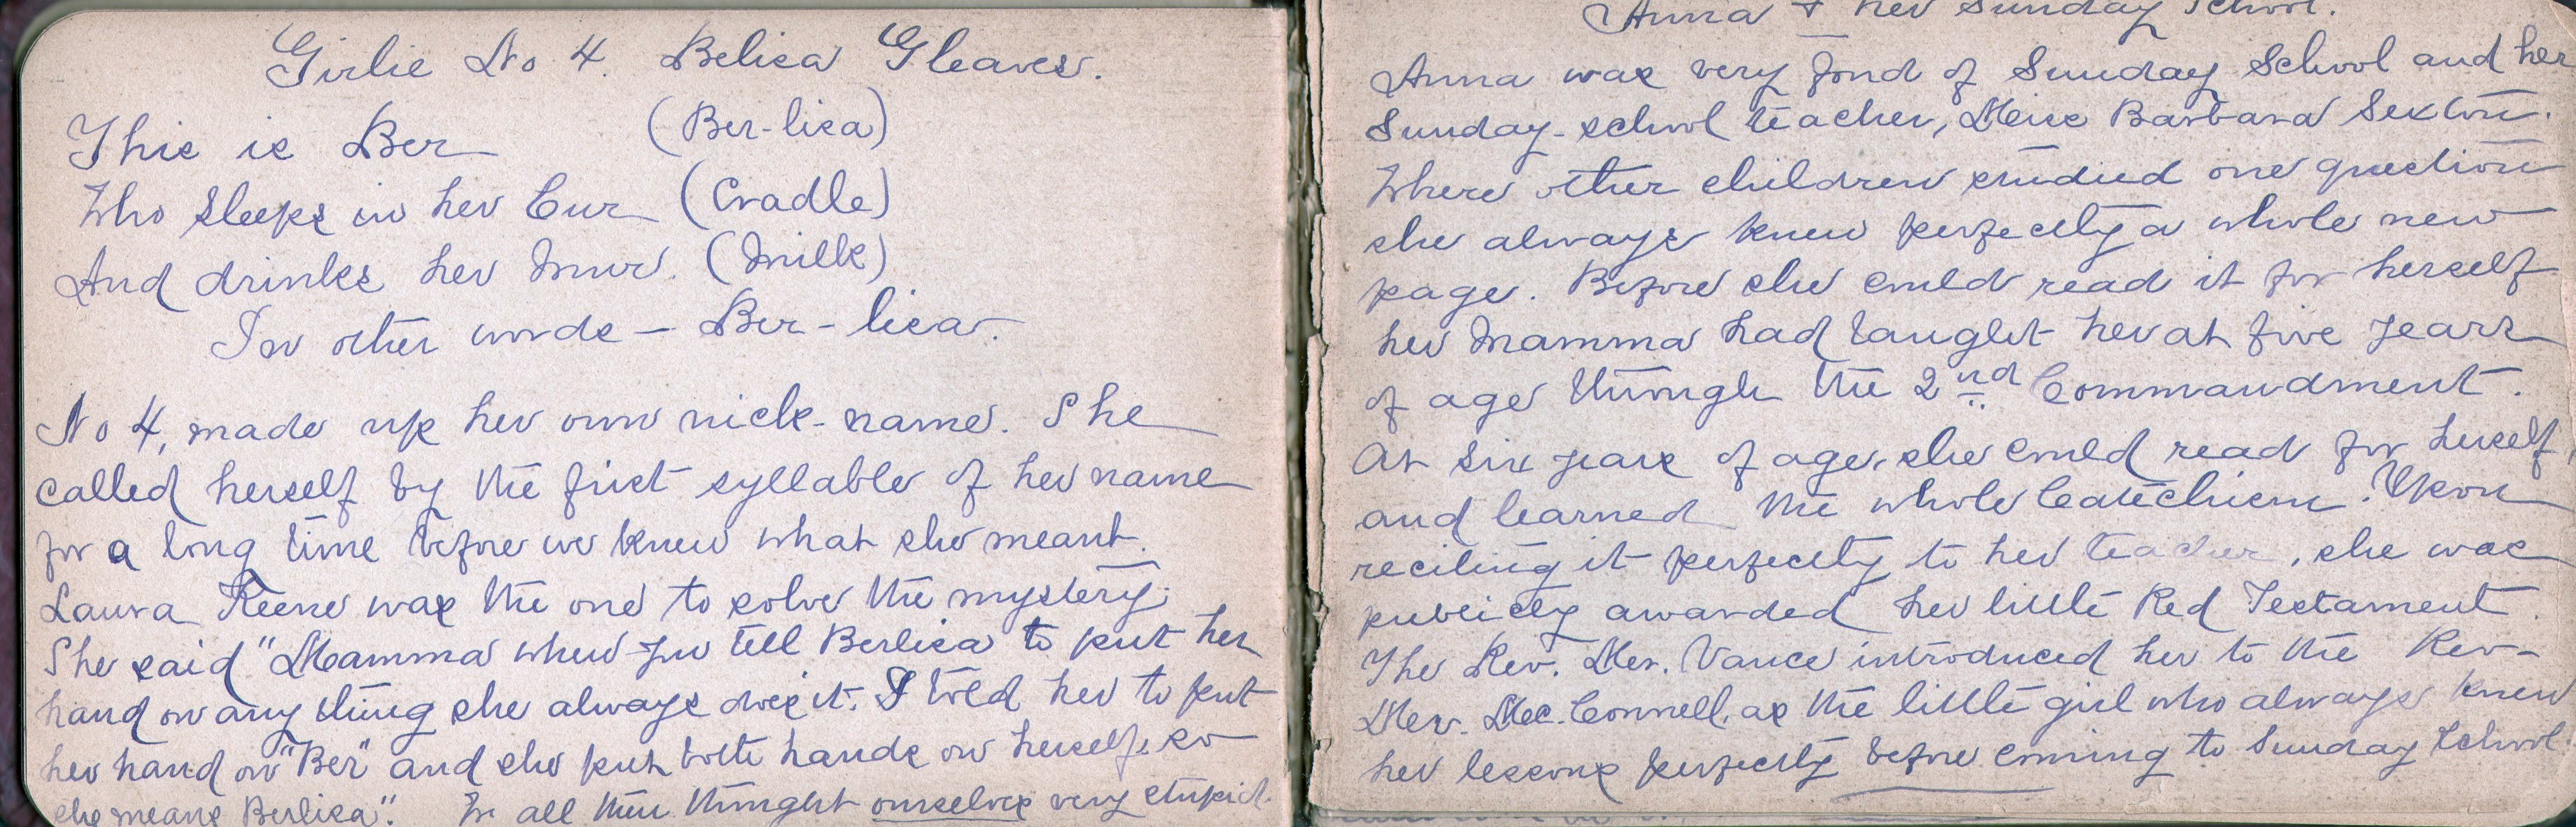 Girlie No 4. Belisa Gleaves.
This is Ber (Ber-lisa)
Who sleeps in her Cur (Cradle)
And drinks her Mur. (Milk)
In other words — Ber-lisa.
No 4, made up her own nick-name. She
called herself by the first syllable of her name
for a long time before we knew what she meant.
Laura Keene was the one to solve the mystery.
She said "Mamma when you tell Berlisa to put her
hand on any thing she always does it. I told her to put
her hand on "Ber" and she put both hands on herself, so
she means Berlisa". We all then thought ourselves very stupid.
Anna & her Sunday School.
Anna was very fond of Sunday School and her
Sunday-school teacher, Miss Barbara Sexton.
Where other children studied one question
she always knew perfectly a whole new
page. Before she could read it for herself
her Mamma had taught her at five years
of age through the 2nd Commandment.
At six years of age, she could read for herself,
and learned the whole Catechism. Upon
reciting it perfectly to her teacher, she was
publicly awarded her little Red Testament.
The Rev. Mr. Vance introduced her to the Rev-
Mr. Mc.Connell, as the little girl who always knew
her lessons perfectly before coming to Sunday School.